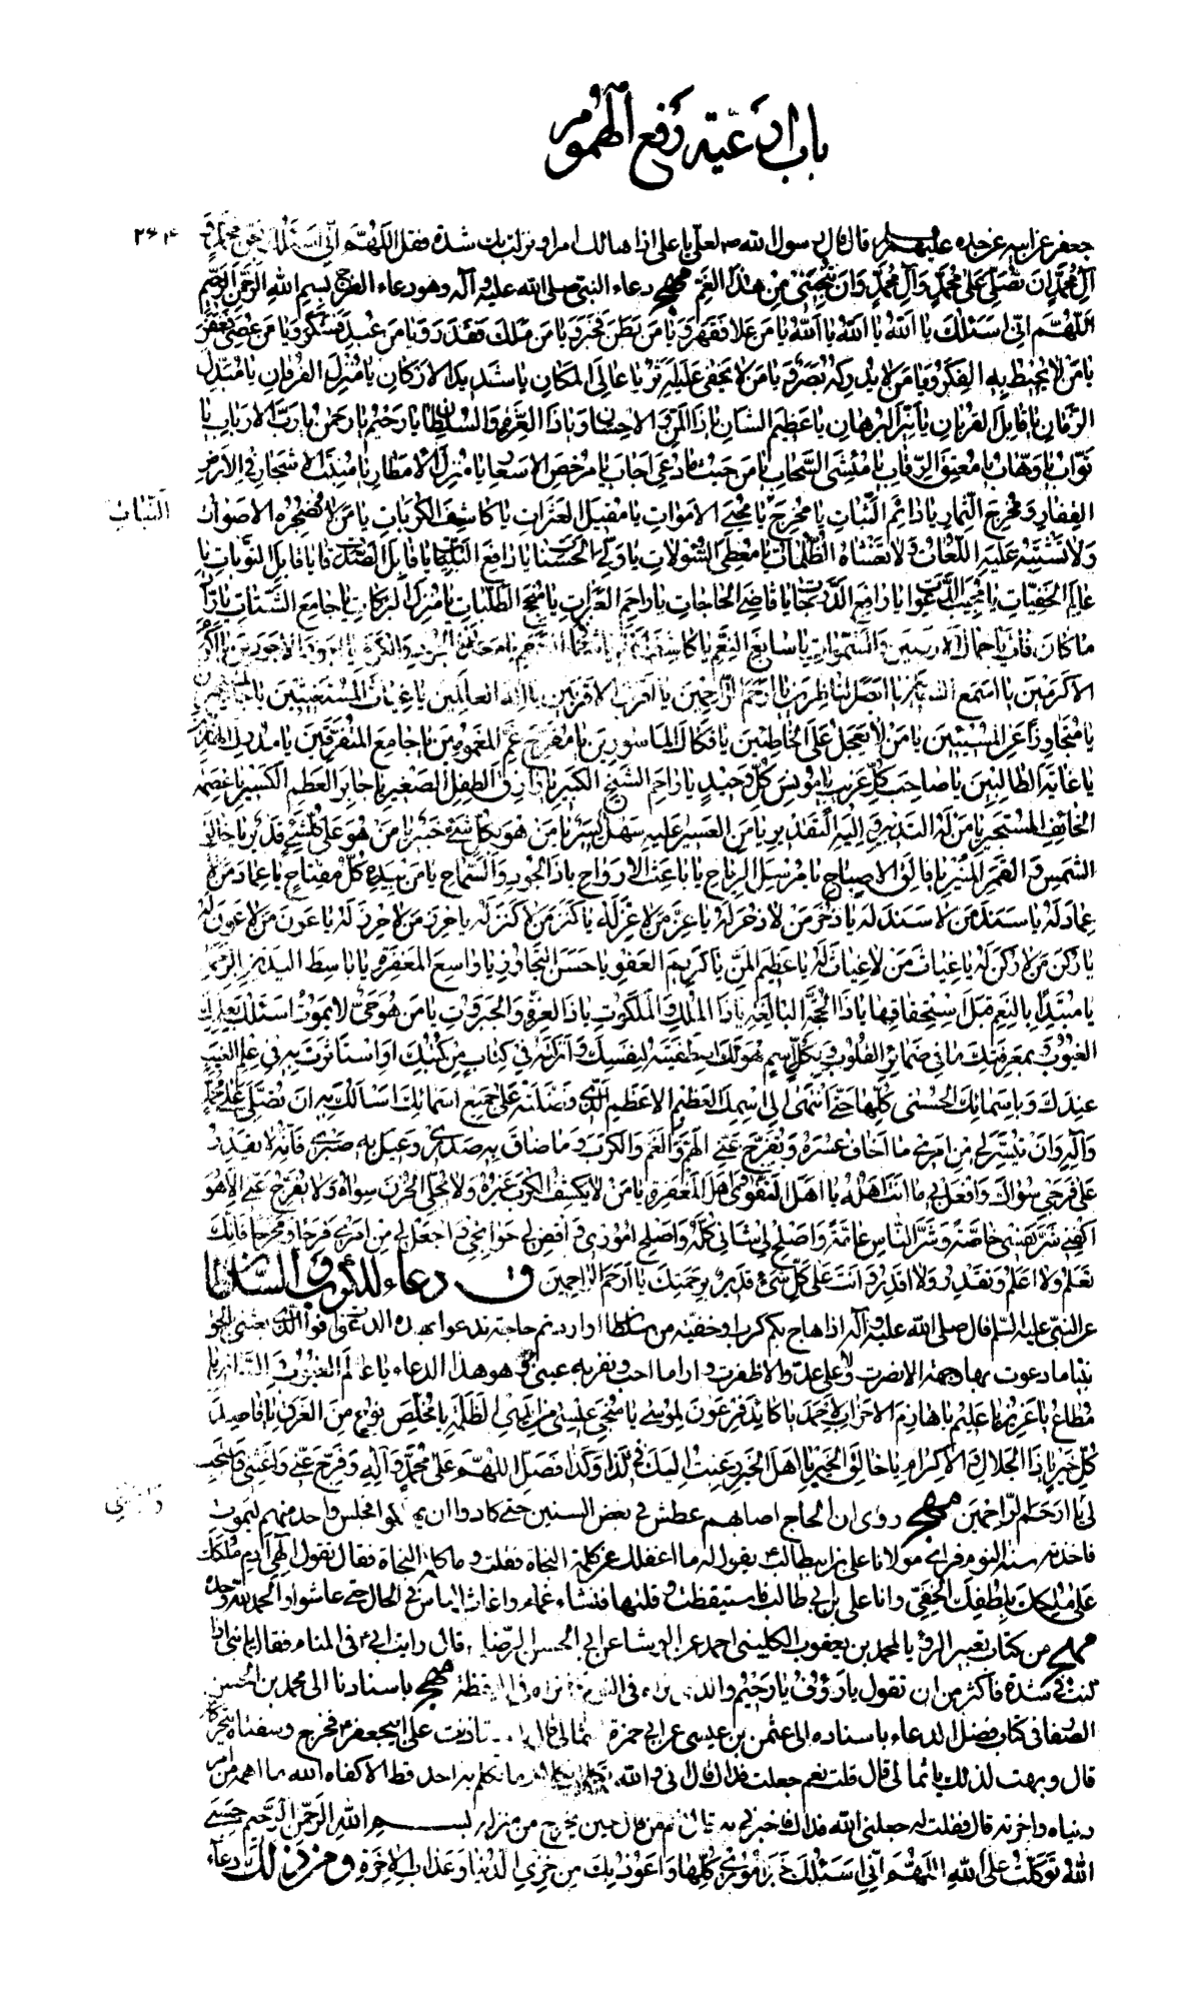 باب ادعية دفع الهموم
٢۶۴
جعفر عن ابيه عن جده عليهم السلم قال قال رسول الله ص لعلى يا على اذا هالك امر او نزلت بك شدة فقل اللهم انى اسئلك بحق محمد و
آل محمد ان تصلى على محمد وآل محمد وان تنجينى من هذا الغم مهج دعاء النبى صلى الله عليه و آله وهو دعاء الفرج بسم الله الرحمن الرحيم
اللهم انى اسئلك يا الله يا الله يا الله يا من علا فقهر ويا من بطن فخبر ويا من ملك فقدر ويا من عبد فشكر ويا من عصى فغفر
يا من لا يحيط به الفكر ويا من لا يدركه بصر ويا من لا يخفى عليه اثر يا عالى المكان يا شديد الاركان يا منزل الفرقان يا مبدل
الزمان يا قابل القربان يا نير البرهان يا عظيم الشان يا ذا المن و الاحسان ويا ذا العزة والسلطان يا رحيم يا رحمن يا رب الارباب يا
تواب يا وهاب يا معتق الرقاب يا منشئ السحاب يا من حيث ما دعى اجاب يا مرخص الاسعار يا منزل الامطار يا منبت الاشجار فى الارض
القفار و مخرج الثمار يا دائم الثبات يا مخرج يا محيى الاموات يا مقيل العثرات يا كاشف الكربات يا من لا تضجره الاصوات
النبات
ولا تشتبه عليه اللغات ولا تغشاه الظلمات يا معطى السؤلات يا ولى الحسنات يا دافع البليات يا قابل الصدقات يا قابل التوبات يا
عالم الخفيات يا مجيب الدعوات يا رافع الدرجات يا قاضى الحاجات يا راحم العبرات يا منجح الطلبات يا منزل البركات يا جامع الشتات يا راد
ما كان فات يا جمال الارضين والسموات يا سابغ النعم يا كاشف
الاكرمين يا اسمع السامعين يا ابصر الناظرين يا ارحم الراحمين يا اقرب الاقربين يا اله العالمين يا غياث المستغيثين
يا متجاوزا عن المسيئين يا من لا يعجل على الخاطئين يا فكاك الماسورين يا مفرج غم المغمومين يا جامع المتفرقين يا مدرك الهاربين
يا غاية الطالبين يا صاحب كل غريب يا مونس كل وحيد يا راحم الشيخ الكبير يا رازق الطفل الصغير يا جابر العظم الكسير يا عصمة
الخائف المستجير يا من له التدبير واليه التقدير يا من العسير عليه سهل يسير يا من هو بكل شئ خبير يا من هو على كل شئ قدير يا خالق
الشمس و القمر المنير يا فالق الاصباح يا مرسل الرياح يا باعث الارواح يا ذا الجود والسماح يا من بيده كل مفتاح يا عماد من لا
عماد له يا سند من لا سند له يا ذخر من لا ذخر له يا عز من لا عز له يا كنز من لا كنز له يا حرز من لا حرز له يا عون من لا عون له
يا ركن من لا ركن له يا غياث من لا غياث له يا عظيم المن يا كريم العفو يا حسن التجاوز يا واسع المغفرة يا باسط اليدين بالرحمة
يا مبتدئا بالنعم قبل استحقاقها يا ذا الحجة البالغة يا ذا الملك والملكوت يا ذا العزة والجبروت يا من هو حى لا يموت اسئلك بعلمك
الغيوب بمعرفتك ما فى ضمائر القلوب وبكل اسم هو لك اصطفيته لنفسك و انزلته فى كتاب من كتبك او استاثرت به فى علم الغيب
عندك وباسمائك الحسنى كلها حتى انتهى الى اسمك العظيم الاعظم الذى فضلته على جميع اسمائك اسالك به ان تصلى على محمد
وآله وان تيسر لى من امرى ما اخاف عسره وتفرج عنى الهم والغم والكرب وما ضاق به صدرى وعيل به صبرى فانه لا يقدر
على فرجى سواك وافعل بى ما انت اهله يا اهل التقوى واهل المغفرة يا من لا يكشف الكرب غيره ولا يجلى الحزن سواه ولا يفرج عنى الا هو
اكفنى شر نفسى خاصة وشر الناس عامة واصلح لى شانى كله واصلح امورى و اقض لى حوائجى و اجعل لى من امرى فرجا ومخرجا فانك
تعلم ولا اعلم وتقدر ولا اقدر وانت على كل شئ قدير برحمتك يا ارحم الراحمين ق دعاء
عن النبى عليه السلم قال صلى الله عليه وآله اذا هاج بكم كرب او خفتم من سلطان او اردتم حاجة فدعوا بهذه الدعوات فوالذى بعثنى بالحق
نبيا ما دعوت بها وجهة الا نصرت ولا على عدو الا ظفرت و ارا ما احب وتقر به عينى وهو هذا الدعاء يا عالم الغيوب
مطاع يا عزيز يا عليم يا هازم الاحزاب لاحمد يا كايد فرعون لموسى يا منجى عيسى من ايدى الظلمة يا مخلص نوح من الغرق يا فاصل
كل خير يا ذا الجلال و الاكرام يا خالق الخير يا اهل الخير رغبت اليك فى كذا وكذا فصل اللهم على محمد وآله وفرج عنى واغثنى
لى يا ارحم الراحمين مهج روى ان الحاج اصابهم عطش فى بعض السنين حتى كادوا ان فجلس واحد منهم ليموت
فاخذته سنة النوم فراى مولانا على بن ابيطالب يقول له ما اغفلك عن كلمة النجاة فقلت و ما كلمة النجاة فقال تقول الهى ادم ملكك
على ملكك بلطفك الخفى وانا على بن ابى طالب فاستيقظت و قلتها فنشاء غمام واغاث الناس فى الحال حتى عاشوا و الحمد لله وحده
مهج من كتاب تعبير الرؤيا لمحمد بن يعقوب الكلينى احمد عن الوشا عن ابى الحسن الرضا قال رايت ابى فى المنام فقال يا بنى اذا
كنت فى شدة فاكثر من ان تقول يا رؤف يا رحيم والذى نراه فى النوم كما نراه فى اليقظة مهج باسنادنا الى محمد بن الحسن
الصفار فى كتاب فضل الدعاء باسناده الى عثمن بن عيسى عن ابى حمزة الثمالى قال استاذنت على ابيجعفر فخرج وشفتاه تتحركان
قال وبهت لذلك يا ثمالى قال قلت نعم جعلت فداك قال انى والله تكلمت بكلام ما تكلم به احد قط الا كفاه الله ما اهمه من امر
دنياه واخرته قال فقلت له جعلنى الله فداك فاخبرنى به قال نعم من قال حين يخرج من منزله بسم الله الرحمن الرحيم حسبى
الله توكلت على الله اللهم انى اسئلك خير امورى كلها واعوذ بك من خزى الدنيا وعذاب الاخرة ومن ذلك دعاء